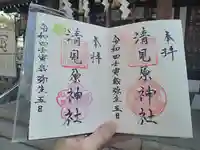 奉拝
清見原神社
令和四壬寅歳弥生五日
奉拝
清見原小神社
令和四壬寅歳弥生五日